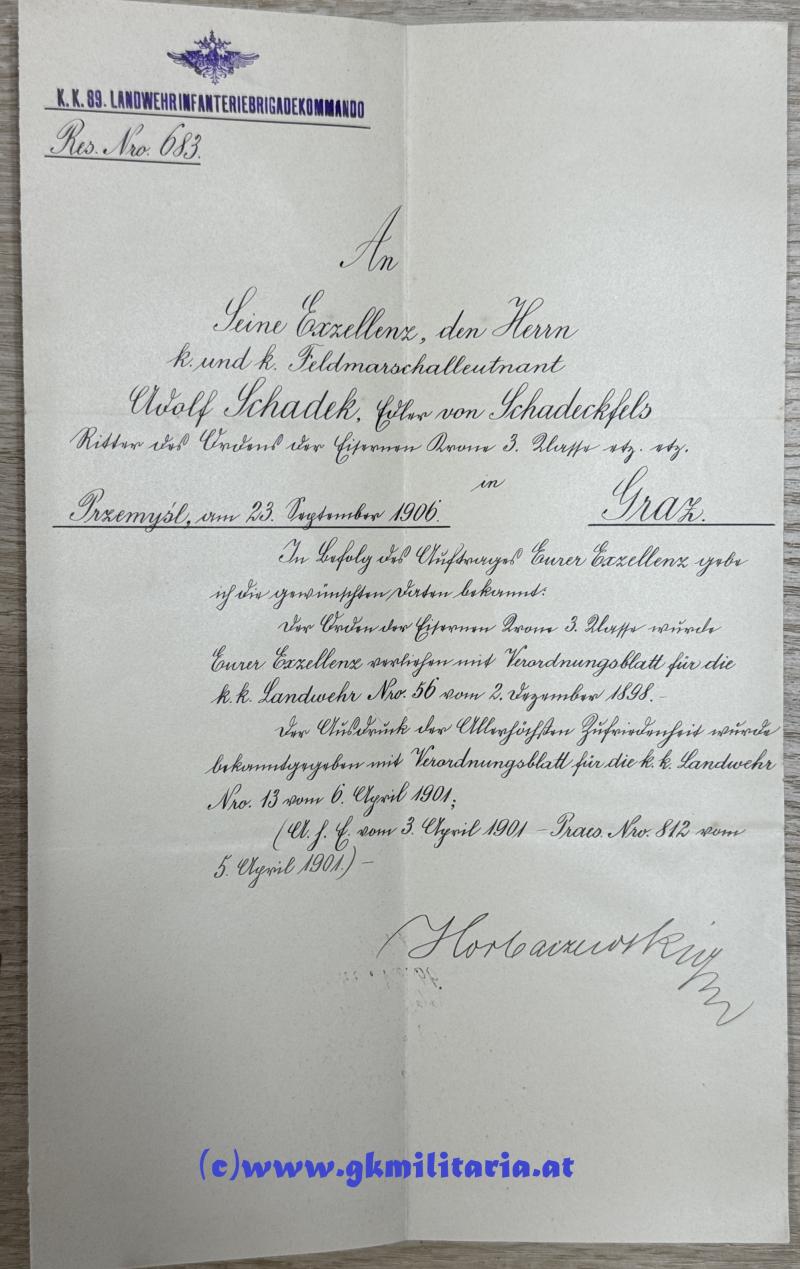 K. K. 89. LANDWEHRINFANTERIEBRIGADEKOMMANDO
Res. Nro. 683.
An
Seine Exzellenz, den Herrn
k. und k. Feldmarschalleutnant
Adolf Schadek, Edler von Schadeckfels
Ritter des Ordens der Eisernen Krone 3. Klasse etz. etz.
in
Przemyśl, am 23. September 1906.
Graz.
In Befolg des Auftrages Eurer Exzellenz gebe
ich die gewünschten Daten bekannt:
Der Orden der Eisernen Krone 3. Klasse wurde
Eurer Exzellenz verliehen mit Verordnungsblatt für die
k. k. Landwehr Nro. 56 vom 2. Dezember 1898.-
Der Ausdruck der Allerhöchsten Zufriedenheit wurde
bekanntgegeben mit Verordnungsblatt für die k. k. Landwehr
Nro. 13 vom 6. April 1901;
(A. h. E. vom 3. April 1901 - Praes. Nro. 812 vom
5. April 1901.) -
Horbaczewski
(c)www.gkmilitaria.at